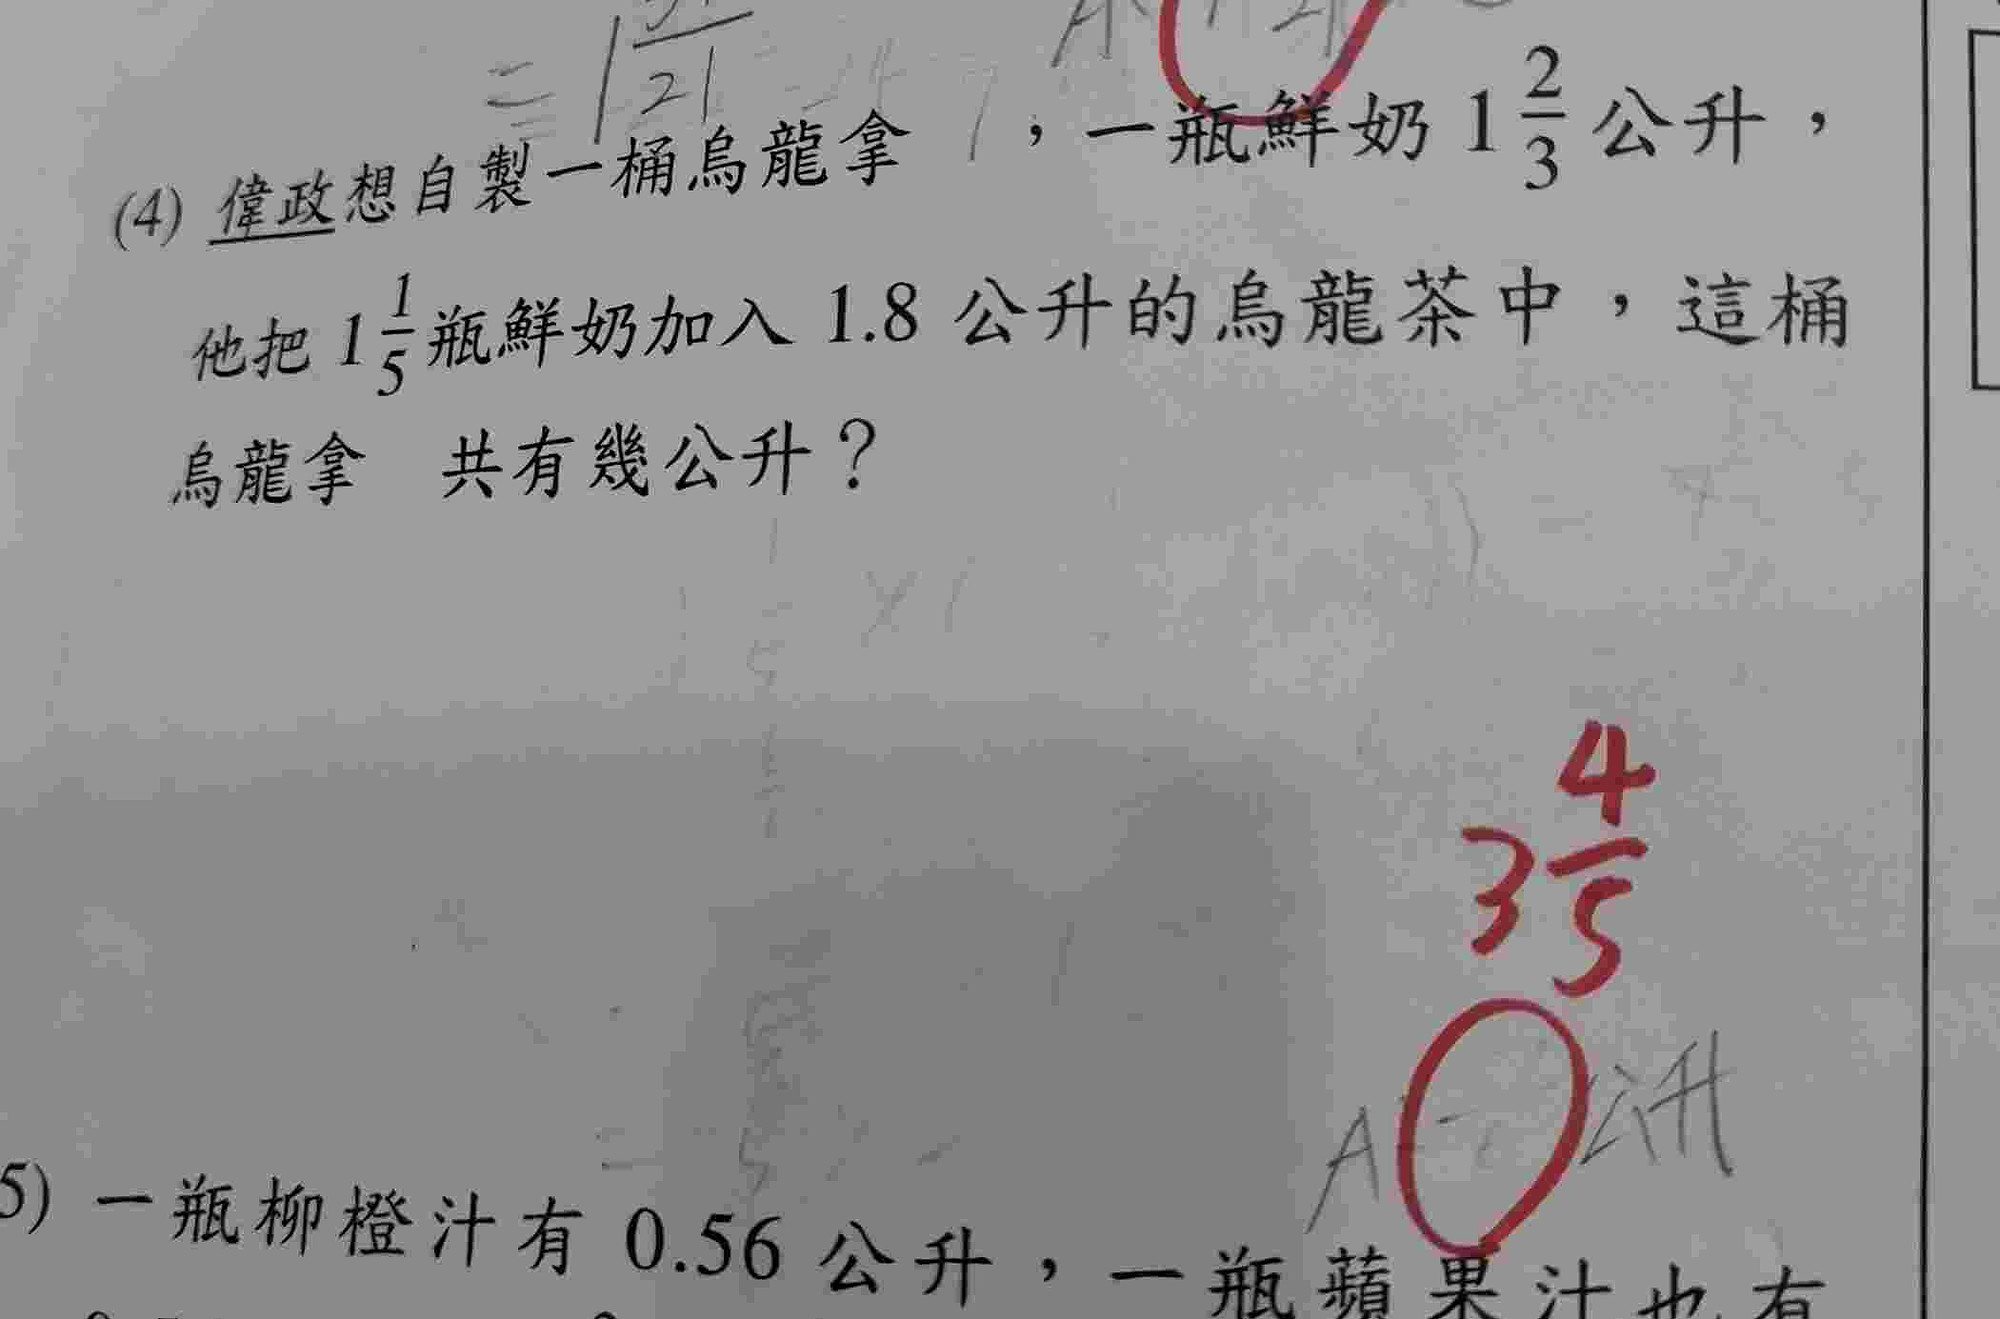 = 1 /21
(4) 偉政想自製一桶烏龍拿 ，一瓶鮮奶 1 2/3 公升，
他把 1 1/5 瓶鮮奶加入 1.8 公升的烏龍茶中，這桶
烏龍拿 共有幾公升？
3 4/5
A 公升
5) 一瓶柳橙汁有 0.56 公升，一瓶蘋果汁也有